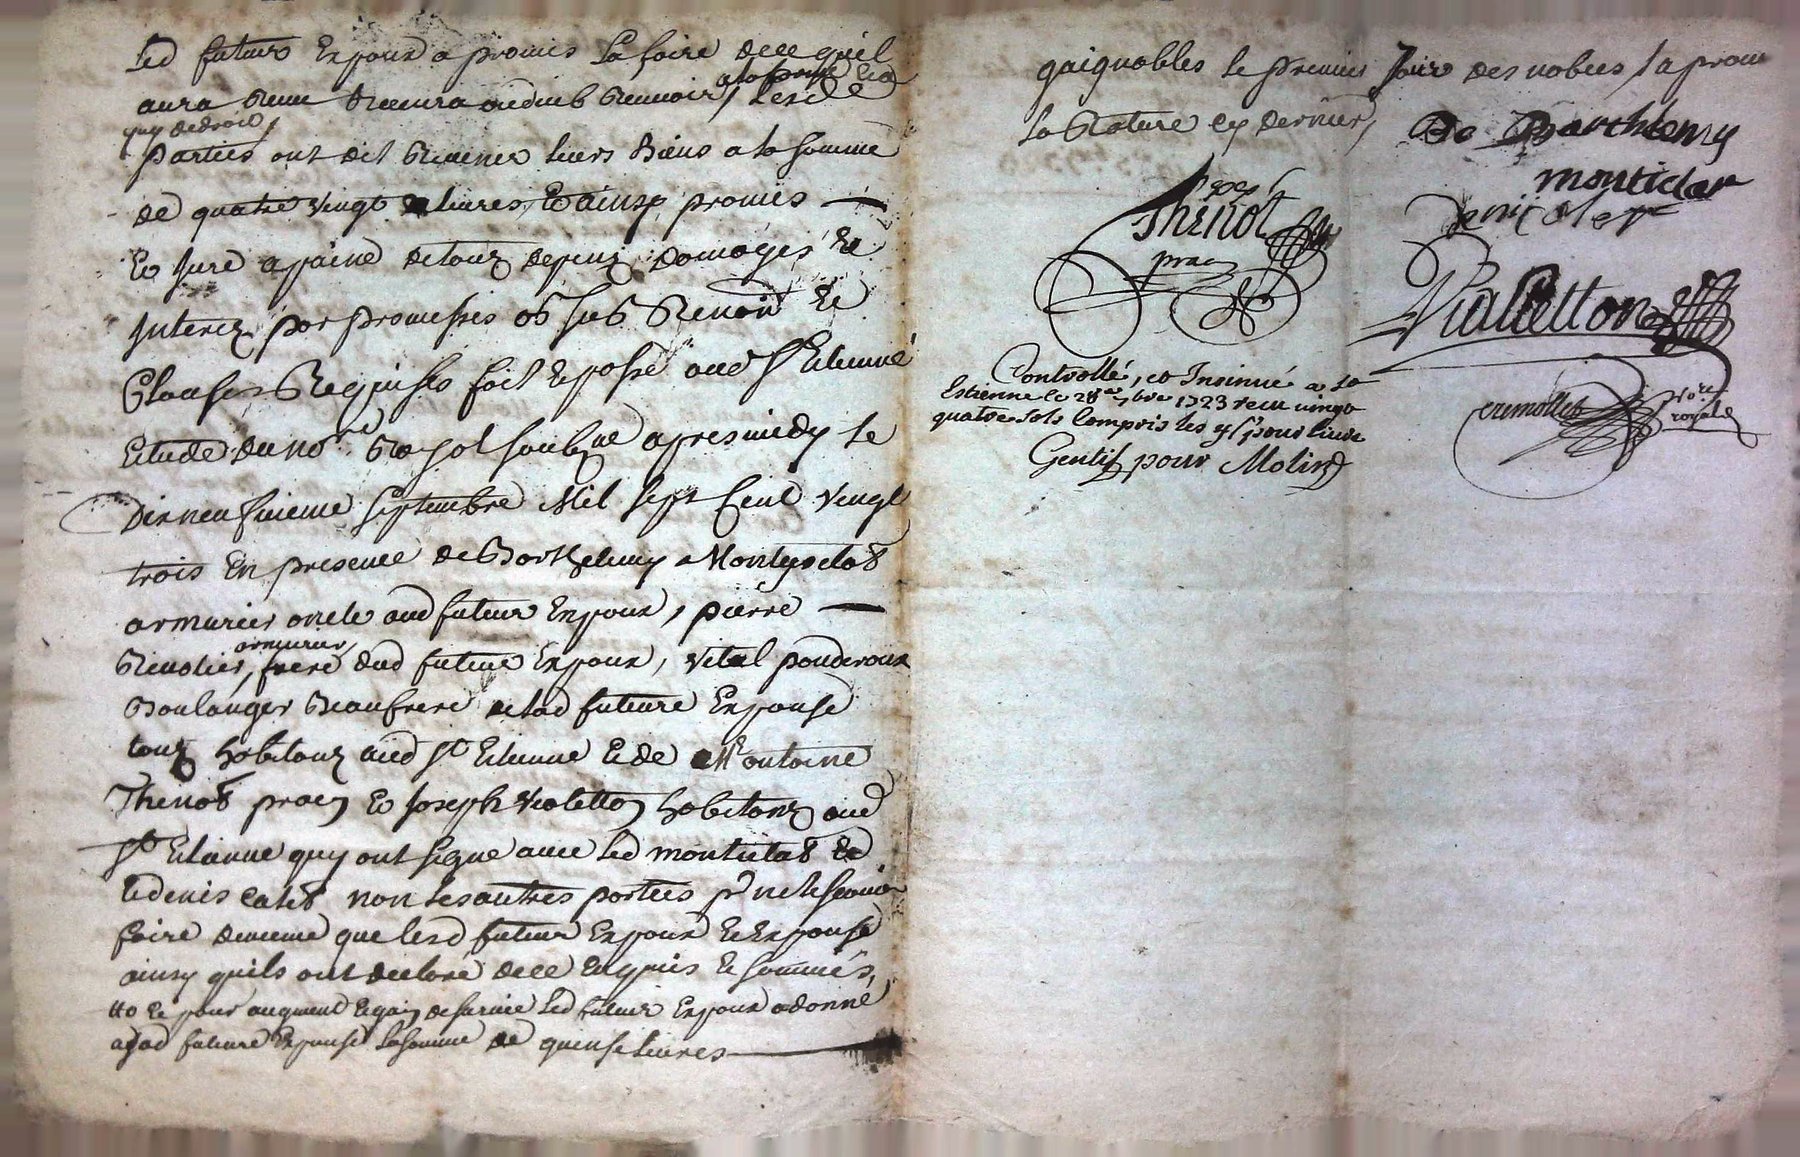 Led futeur Expoux a promis La faire de ce quil
aura Receu Recevra ou doib Recevoir, a la forme Les de
quy de droit,
parties ont dit Revenir leurs Biens a la somme
de quatre vingt livres Et ainsy promis
Et Juré a paine de touz depenz domages Et
Interez par promesses ob Sub Renon Et
Clauses Requises fait Et passé aud St Etienne
Etude du no.re soubz.né apres midy le
Dixneufvieme Septembre Mil Sept Cent Vingt
trois En presence de Barthelemy Montyclat
armurier oncle aud futeur Expoux, pierre
Renodier, armurier frere dud futeur Expoux, Vital ponderoux
Boulanger Beaufrere de lad futeure Expouse
touz habitanz aud St Etienne Et de Mr antoine
Thenot pracn Et Joseph Vialetton habitanz aud
St Etienne quy ont signe avec Led monticlat Et
Led denis non Les autres parties pr ne le scavoir
faire de meme que Lesd futeur Expoux Et Expouse
ainsy quils ont declaré de ce Enquis Et sommés,
Et pour augment Et gain de survie Led futeur Expoux a donné
a lad futeure Expouse La somme de quinse livres
gaignables le premier Jour des nobces, sa prom
La Rature cy dernier,
Barthlemy
monticlat
denis
Thenot
pracn
Vialletton
Controllé, et Insinué a St
Estienne le 28me 7bre 1723 receu vingt
quatre sols Compris les 4s pour livre
Gentil pour Molin
Cremollet
No.re
royal